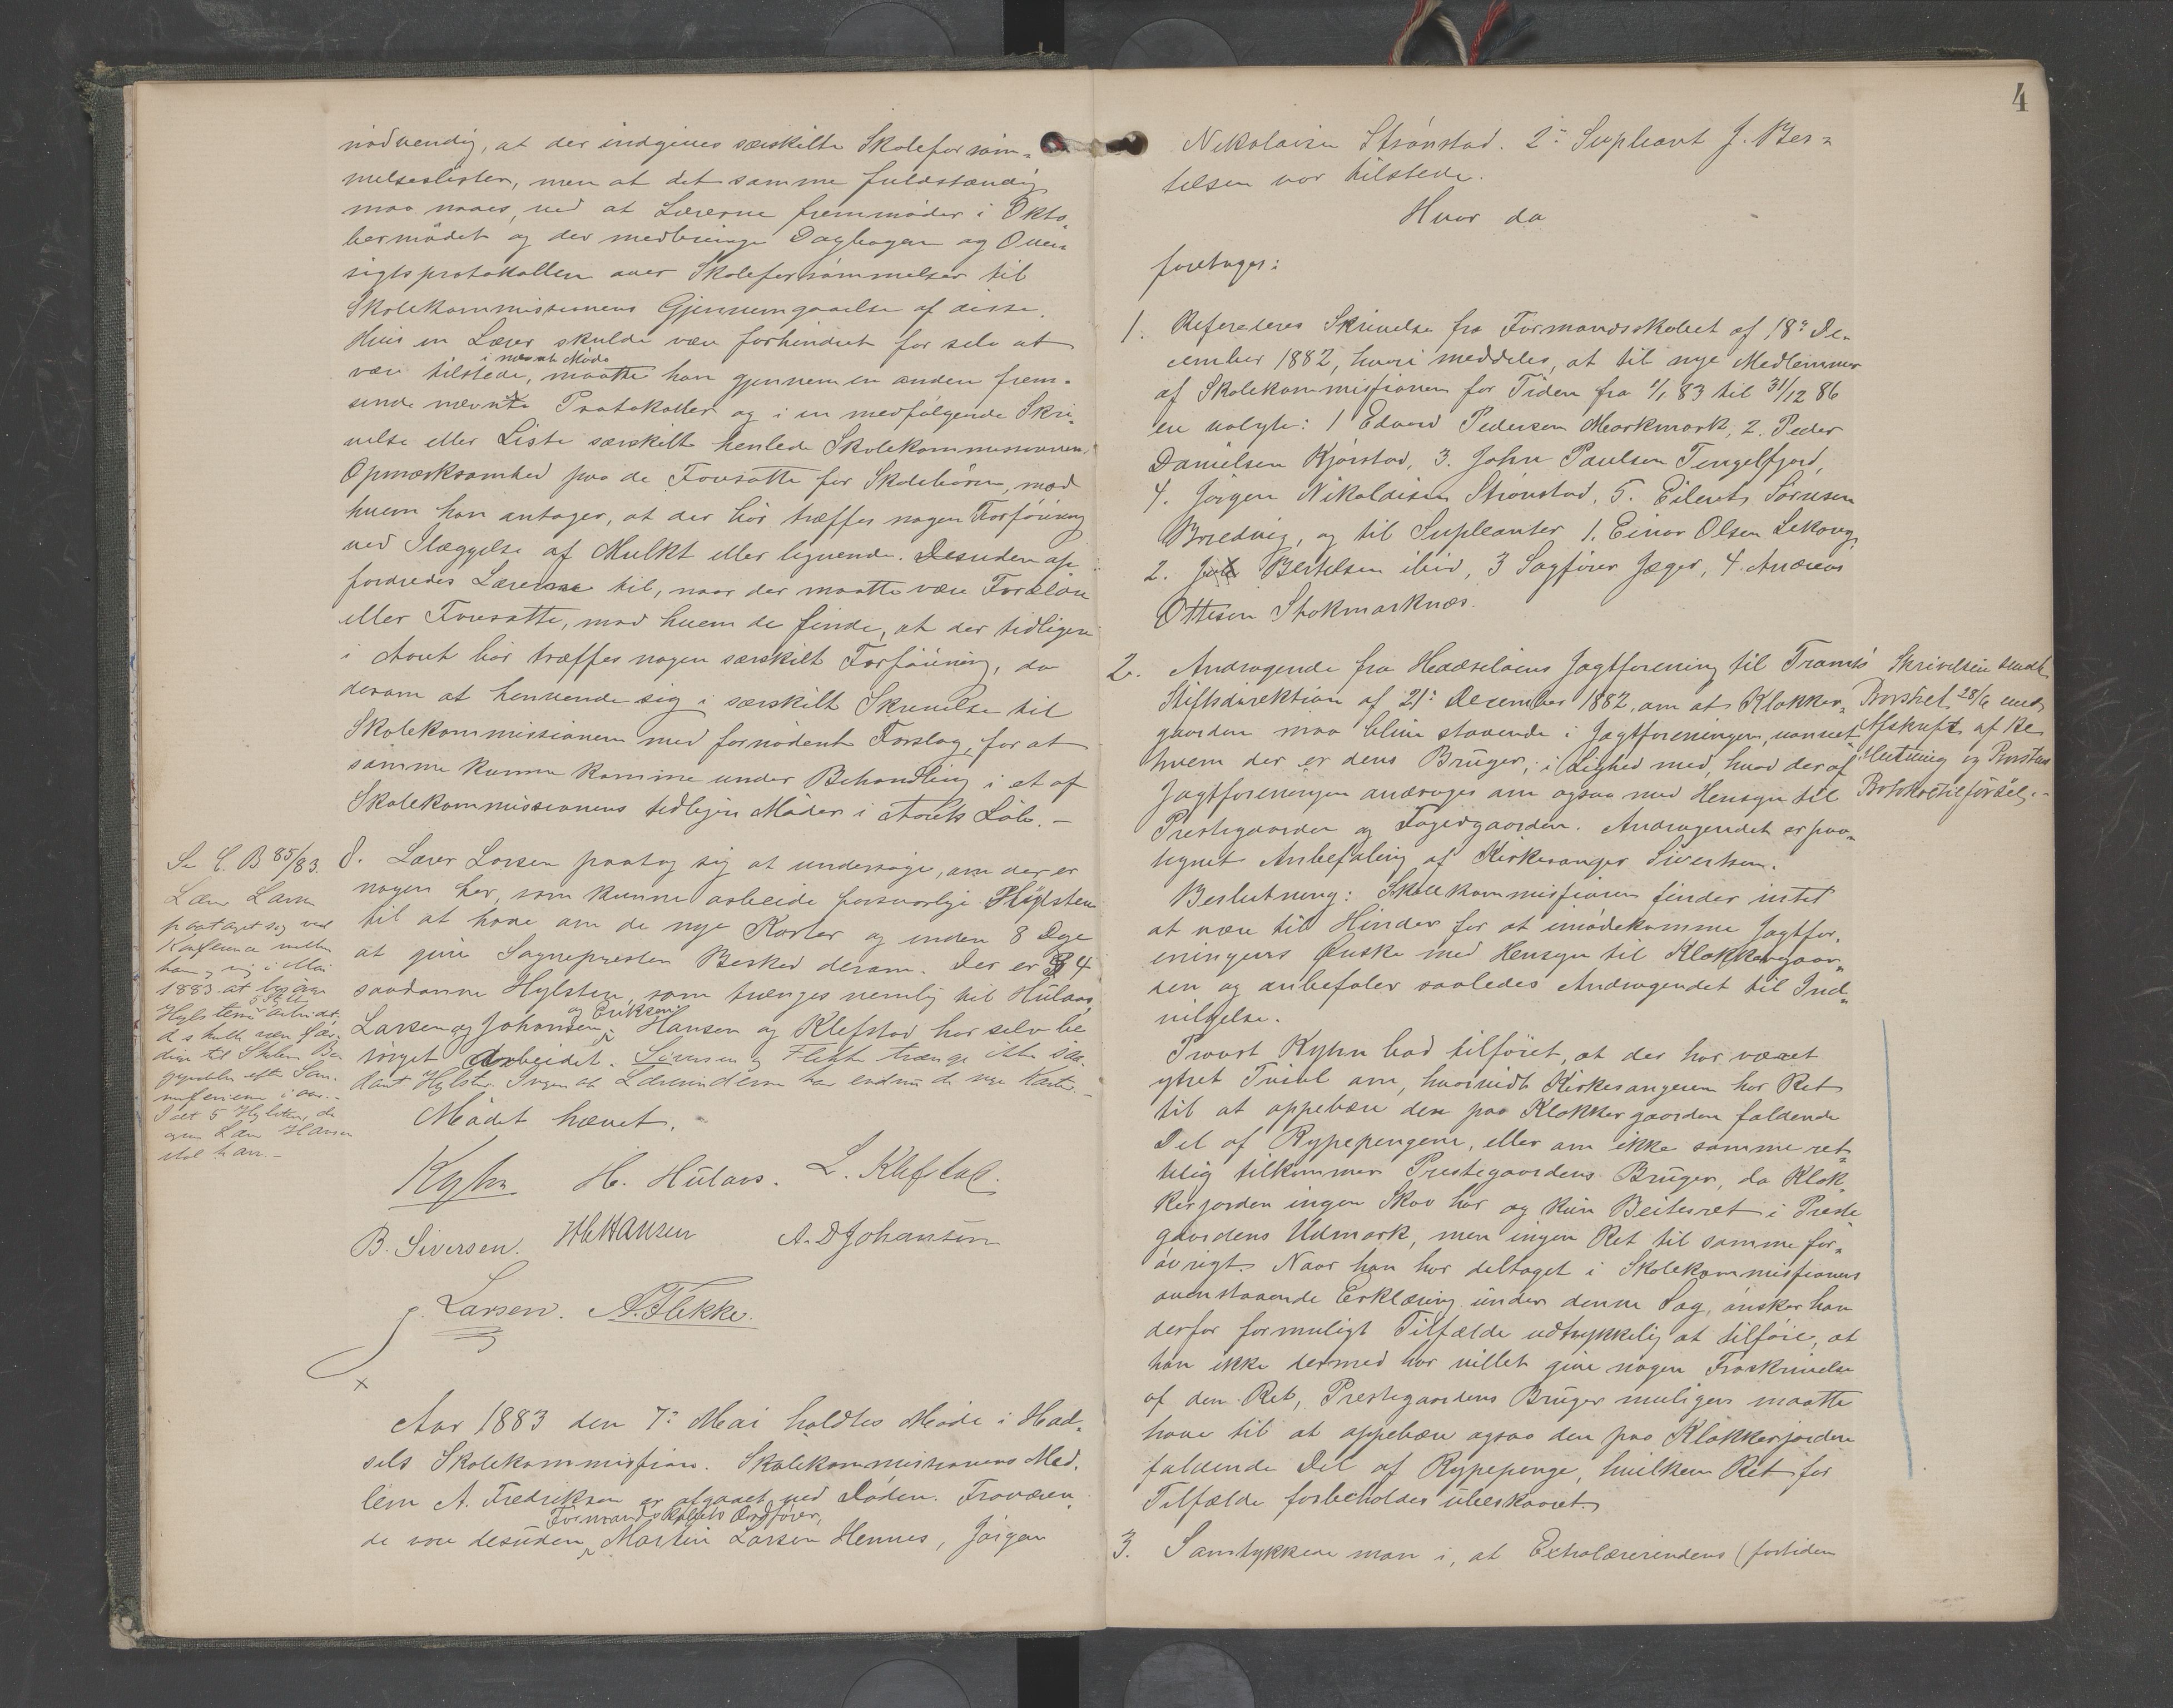 nødvendig, at der indgives særskilte Skoleforsøm-
melseslister, men at det samme fuldstændig
maa naaes, ved at Lærerne fremmøder i Okto-
bermødet og der medbringe Dagbogen og Over-
sigtsprotokollen over Skoleforsømmelser til
Skolekommissionens Gjennemgaaelse af disse.
Hvis en Lærer skulde være forhindret for selv at
i nævnte Møde
være tilstede, maatte han gjennem en anden frem-
sende nævnte Protokoller og i en medfølgende Skri-
velse eller Liste særskilt henlede Skolekommissionens
Opmærksomhed paa de Foresatte for Skolebørn, mod
hvem han antager, at der bør træffes nogen Forføining
ved Ilæggelse af Mulkt eller lignende. Desuden op-
fordredes Lærerne til, naar der maatte være Forældre
eller Foresatte, mod hvem de finde, at der tidligere
i Aaret bør træffes nogen særskilt Forføining, da
derom at henvende sig i særskilt Skrivelse til
Skolekommissionen med fornødent Forslag, for at
samme kunne komme under Behandling i et af
Skolekommissionens tidligere Møder i Aarets Løb. -
8. Lærer Larsen paatog sig at undersøge, om der er
nogen her, som kunne arbeide forsvarlige Hylstere
til at have om de nye Karter og inden 8 Dage
at give Sognepresten Besked derom. Der er 4
saadanne Hylstere, som trænges nemlig til Hülaas,
og Eriksen
Larsen og Johansen, Hansen og Klefstad har selv be-
sørget Arbeidet. Siversen og Flekke trænge ikke saa-
dant Hylster. Ingen af Lærerinderne har endnu de nye Karter. -
Mødet hævet.
Se C. B 85/83.
Lærer Larsen
paataget sig ved
Konference mellem
ham og mig i Mai
1883 at besørge
5 Stkr
Hylsterne arbeidet,
de skulle være fær-
dige til Skolens Be-
gyndelse efter Som-
merferierne i aar. -
I alt 5 Hylstere, da
ogsaa Lærer Hansen
skal have. -
Kyhn H. Hülaas. L. Klefstad.
B. Siversen. H Hansen A. D Johansen
J. Larsen. A. Flekke.
Aar 1883 den 7de Mai holdtes Møde i Had-
sels Skolekommission. Skolekommissionens Med-
lem A. Fredriksen er afgaaet ved Døden. Fraværen-
Formandskabets Ordfører,
de vare desuden Martin Larsen Hennes, Jørgen
4
Nikolaisen Strønstad. 2den Supleant J. Ber-
telsen var tilstede.
Hvor da
foretages:
1. Refereredes Skrivelse fra Formandsskabet af 18de De-
cember 1882, hvori meddeles, at til nye Medlemmer
af Skolekommissionen for Tiden fra 1/1 83 til 31/12 86
ere valgte: 1 Edvard Pedersen Markmark, 2. Peder
Danielsen Kjørstad, 3. John Paulsen Tengelfjord,
4. Jørgen Nikolaisen Strønstad, 5. Eilert Sørensen
Bredvig, og til Supleanter 1. Einar Olsen Lekang,
2. J. Bertelsen ibid, 3 Sagfører Jæger, 4. Andreas
Ottesen Stokmarknæs.
2. Andragende fra Hadseløens Jagtforening til Tromsø
Stiftsdirektion af 21de December 1882, om at Klokker-
gaarden maa blive staaende i Jagtforeningen, uanseet
hvem der er dens Bruger, i Lighed med, hvad der af
Jagtforeningen andrages om ogsaa med Hensyn til
Prestegaarden og Fogedgaarden. Andragendet er paa-
tegnet Anbefaling af Kirkesanger Sivertsen.
Beslutning: Skolekommissionen finder intet
at være til Hinder for at imødekomme Jagtfor-
eningens Ønske med Hensyn til Klokkergaar-
den og anbefaler saaledes Andragendet til Ind-
vilgelse.
Skrivelsen sendt
Provstiet 28/6 med
Afskrift af Be-
slutning og Provstens
Protokoltilførsel. -
Provst Kyhn bad tilføiet, at der har været
ytret Tvivl om, hvorvidt Kirkesangeren har Ret
til at oppebære den paa Klokkergaarden faldende
Del af Rypepengene, eller om ikke samme ret-
telig tilkommer Prestegaardens Bruger, da Klok-
kerjorden ingen Skov har og kun Beitesret i Preste-
gaardens Udmark, men ingen Ret til samme for-
øvrigt. Naar han har deltaget i Skolekommissionens
ovenstaaende Erklæring under denne Sag, ønsker han
derfor for muligt Tilfælde udtrykkelig at tilføie, at
han ikke dermed har villet give nogen Fraskrivelse
af den Ret, Prestegaardens Bruger muligens maatte
have til at oppebære ogsaa den paa Klokkerjorden
faldende Del af Rypepenge, hvilken Ret for
Tilfælde forbeholdes ubeskaaret.
3. Samtykkede man i, at Extralærerindens (fortiden